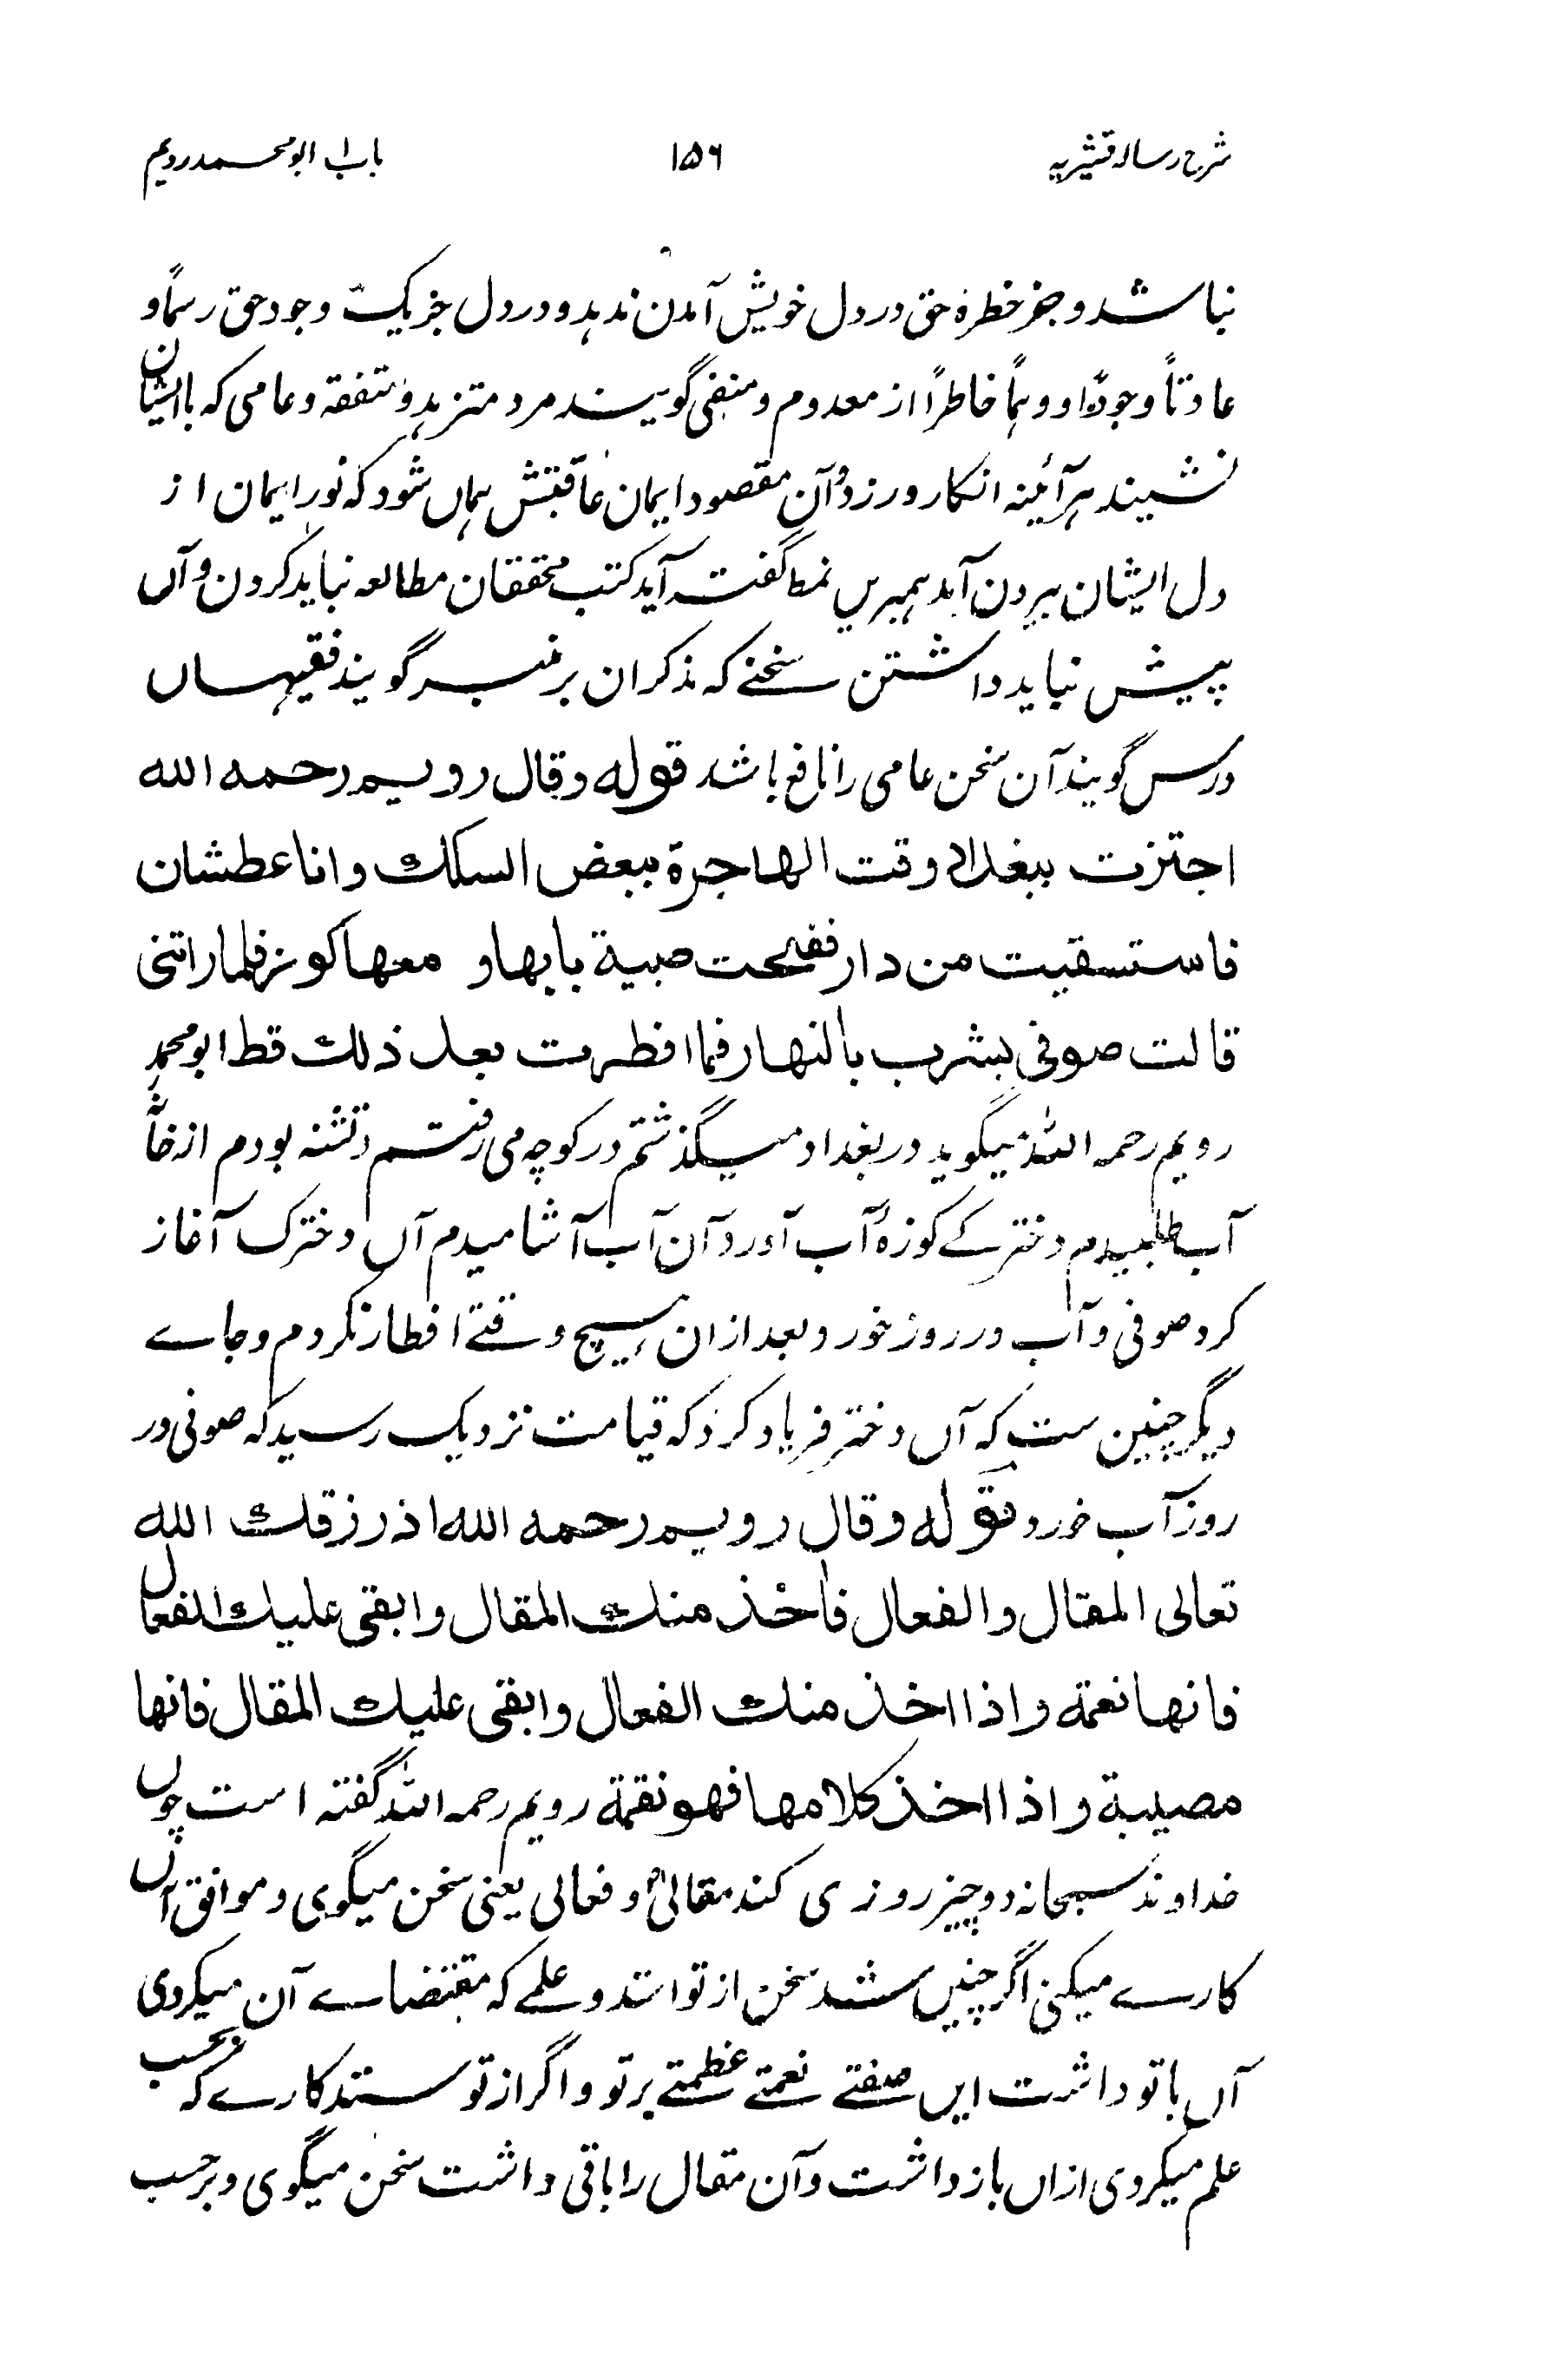 شرح رساله قشیریه ۱۵۶ باب ابو محمد رویم
نباشد و جز خطرهٔ حق در دل خویش آمدن ندهد و در دل جز یک وجود حق رسماً و
عادتاً وجوداً و وہماً خاطراً از معدوم و منفی گویند مرد متزہد و متفقه و عامی که با ایشان
نشیند ہرآئینه انکار ورزد و آن مقصود ایمان عاقبتش ہماں شود که نور ایمان از
دل ایشان بیرون آید ہمبریں نمط گفته آید کتب محققان مطالعه نباید کردن و آں
پیش نباید داشتن سخنے که مذکران بر منبر گویند فقیہاں
درس گویند آن سخن عامی را نافع باشد قوله وقال رویم رحمه الله
اجتزت ببغداد وقت الهاجرة ببعض السكك وانا عطشان
فاستسقيت من دار ففتحت صبية بابها و معها كوز فلما راتني
قالت صوفي يشرب بالنهار فما افطرت بعد ذلك قط ابو محمد
رویم رحمه الله میگوید در بغداد میگذشتم در کوچه می رفتم و تشنه بودم از خانهٔ
آب طلبیدم دخترکے کوزهٔ آب آورد آن آب آشامیدم آں دخترک آغاز
کرد صوفی و آب در روز خورد بعد ازان ہیچ وقتے افطار نکردم و جاے
دیگر چنین ست که آں دختر فریاد کرد که قیامت نزدیک رسید که صوفی در
روز آب خورد قوله وقال رويم رحمه الله اذ رزقك الله
تعالى المقال والفعال فاخذ منك المقال وابقى عليك الفعال
فانها نعمة واذا اخذ منك الفعال وابقى عليك المقال فانها
مصيبة واذا اخذ كلامها فهو نقمة رویم رحمه الله گفته است چوں
خداوند سبحانه دو چیز روزی کند مقالی و فعالی یعنی سخن میگوی و موافق آں
کارے میکنی اگر چنیں شد سخن از تو استد و علمے که مقتضاے آن میکردی
آں با تو داشت ایں صفتے نعمتے عظمتے بر تو و اگر از تو ستد کارے که بحسب
علم میکردی ازاں باز داشت و آن مقال را باقی داشت سخن میگوی و برحسب